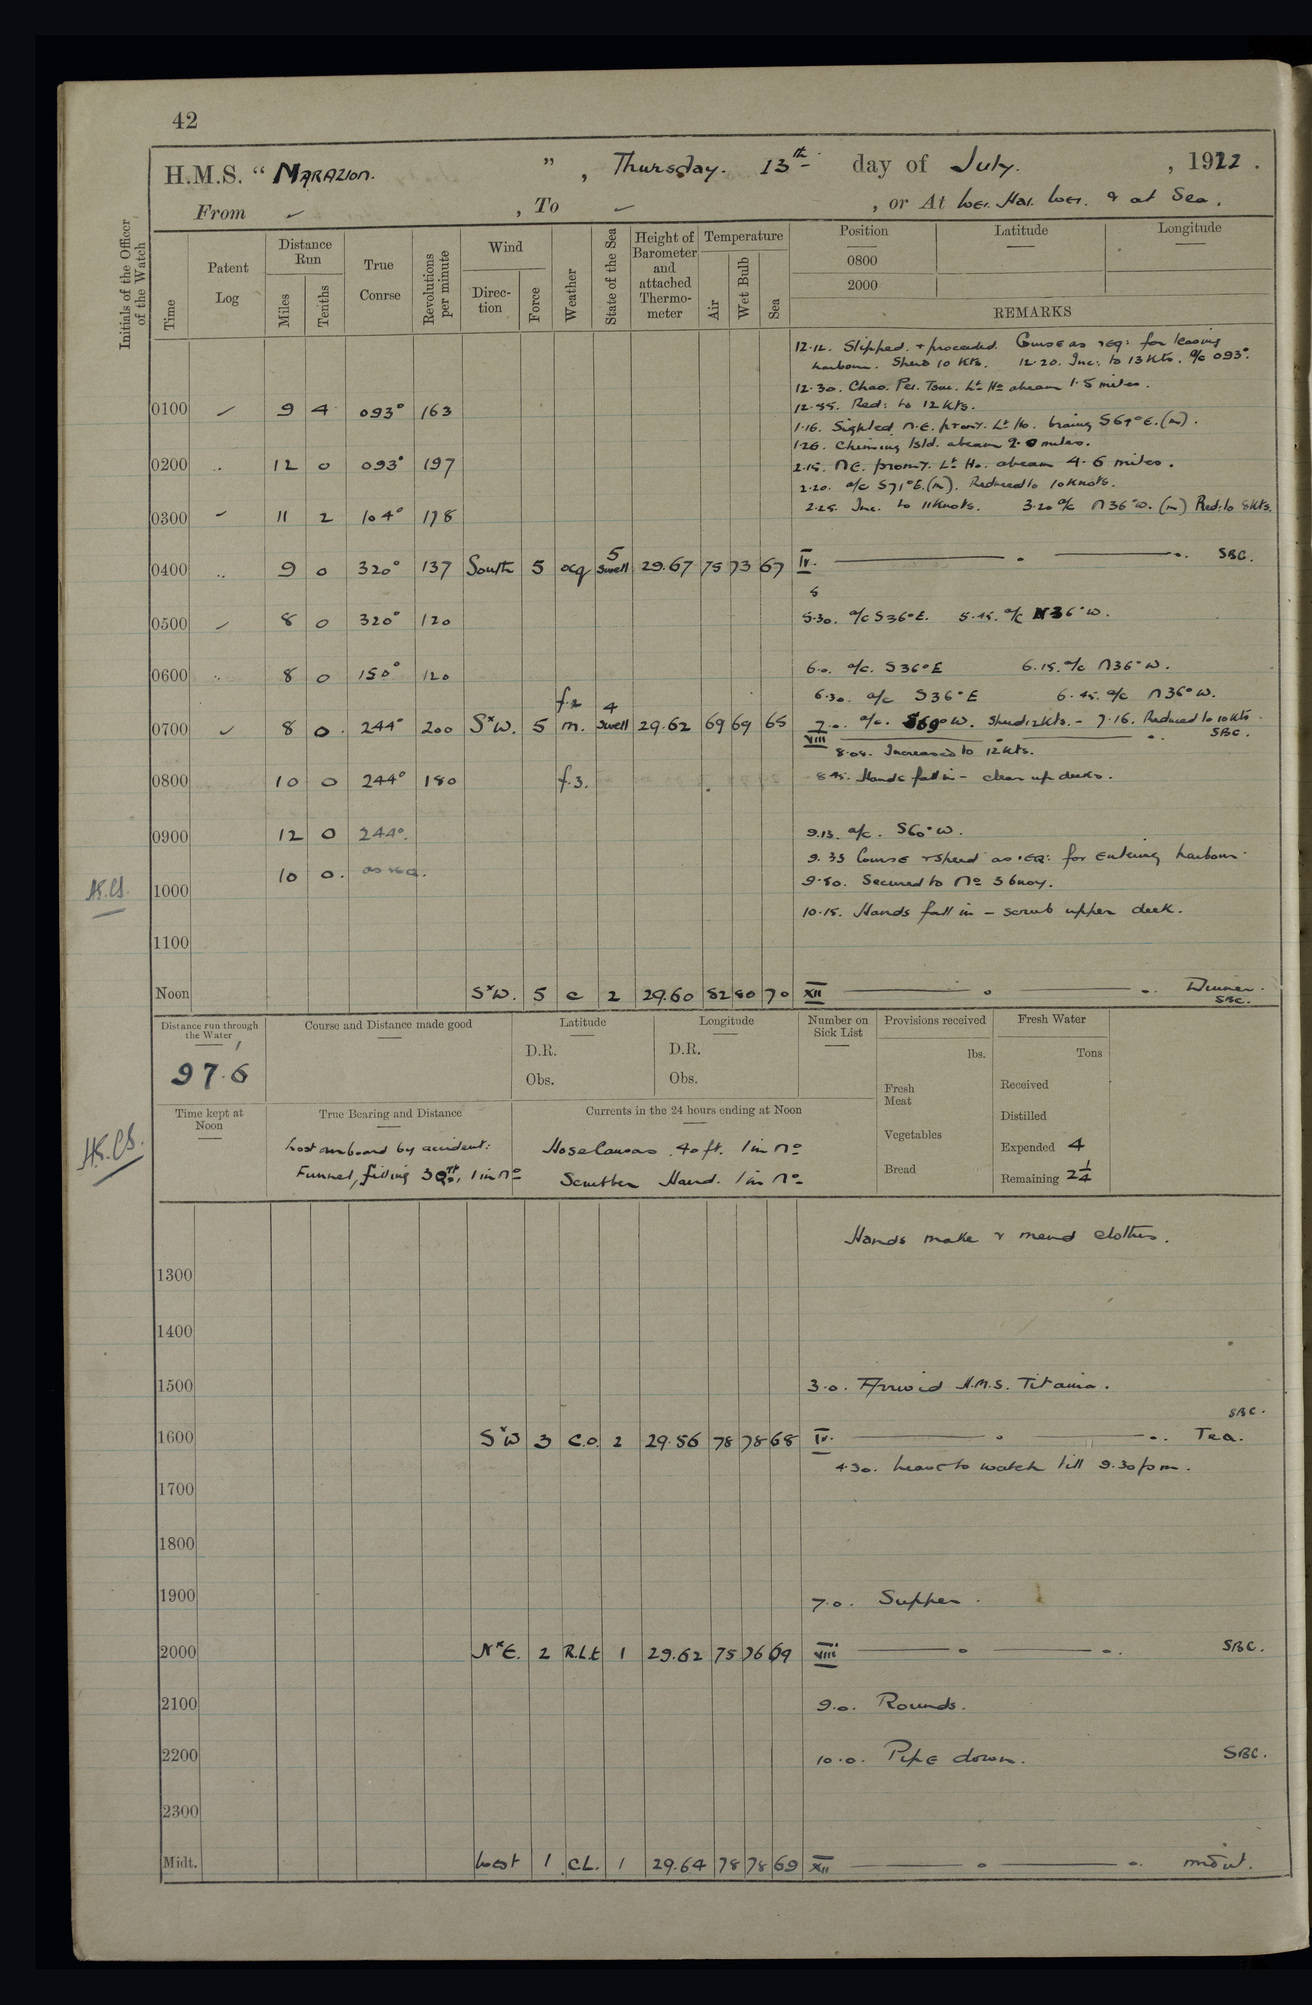 42
H.M.S. "MARAZION. ", Thursday. 13th day of July. , 1922.
From ✓ , To ✓ , or At Wei. Hai. Wei. & at Sea.
Initials of the Officer of the Watch
Time
Patent Log
Distance Run
Miles
Tenths
True Course
Revolutions per minute
Wind
Direction
Force
Weather
State of the Sea
Height of Barometer and attached Thermometer
Temperature
Air
Wet Bulb
Sea
Position
Latitude
Longitude
0800
2000
REMARKS
12.12. Slipped. & proceeded. Course as req: for leaving
harbour. Speed 10 Kts. 12.20. Inc: to 13 Kts. a/c 093°.
12.30. Chao. Pei. Tsui. Lt Ho abeam 1.5 miles.
0100 ✓ 9 4 093° 163 12.55. Red: to 12 Kts.
1.16. Sighted N.E. promy. Lt Ho. bearing S69°E.(m).
1.26. Cheming Isld. abeam 2.0 miles.
0200 .. 12 0 093° 197 2.15. NE. promy. Lt Ho. abeam 4.6 miles.
2.20. a/c S71°E.(m). Reduced to 10 Knots.
0300 ✓ 11 2 104° 178 2.25. Inc. to 11 Knots. 3.20 a/c N36°W. (m) Red: to 8 Kts.
0400 .. 9 0 320° 137 South 5 ocq 5 Swell 29.67 75 73 67 IV. SBC.
0500 ✓ 8 0 320° 120 5.30. a/c S36°E. 5.45. a/c N36°W.
0600 .. 8 0 150° 120 6.0. a/c. S36°E 6.15. a/c N36°W.
6.30. a/c S36°E 6.45. a/c N36°W.
0700 ✓ 8 0. 244° 200 SxW. 5 f.2 m. 4 Swell 29.62 69 69 65 7.0. a/c. S69°W. Speed 12 Kts. - 7.16. Reduced to 10 Kts.
VIII SBC.
8.05. Increased to 12 Kts.
0800 10 0 244° 180 f.3. 8.45. Hands fall in - clean up decks.
0900 12 0 244°. 9.13. a/c. S60°W.
9.35 Course & Speed as req: for Entering harbour.
10 0. as req.
1000 9.50. Secured to No 5 buoy.
H.C.S.
10.15. Hands fall in - scrub upper deck.
1100
Noon SxW. 5 c 2 29.60 82 80 70 XII Dinner.
SBC.
Distance run through the Water
97.6
Course and Distance made good
Latitude
D.R.
Obs.
Longitude
D.R.
Obs.
Number on Sick List
Provisions received
lbs.
Fresh Meat
Vegetables
Bread
Fresh Water
Tons
Received
Distilled
Expended 4
Remaining 2 1/4
Time kept at Noon
True Bearing and Distance
Currents in the 24 hours ending at Noon
H.C.S.
Lost overboard by accident: Hose Canvas 40 ft. 1 in No
Funnel, filling 3 Qrt, 1 in No Scrubber Hand. 1 in No
Hands make & mend clothes.
1300
1400
1500 3.0. Arrived H.M.S. Titania.
SBC.
1600 SxW 3 C.O. 2 29.56 78 78 68 IV. Tea.
4.30. Leave to watch till 9.30 pm.
1700
1800
1900 7.0. Supper.
2000 NxE. 2 R.L.t 1 29.62 75 76 69 VIII SBC.
2100 9.0. Rounds.
2200 10.0. Pipe down. SBC.
2300
Midt. West 1 C.L. 1 29.64 78 78 69 XII